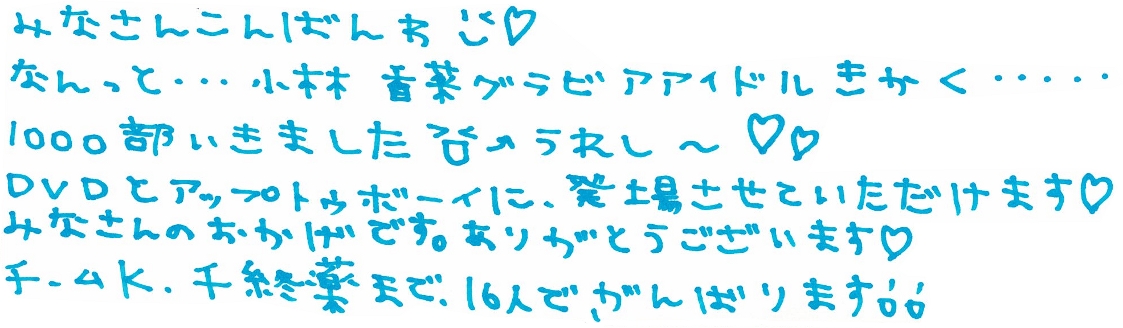 みなさんこんばんわ♡
なんっと・・・小林 香菜グラビアアイドル きかく・・・・・
1000部いきました↗うれし～♡♡
DVDとアップトゥボーイに、発場させていただけます♡
みなさんのおかげです。ありがとうございます♡
チームK、千終薬まで、16人で、がんばります